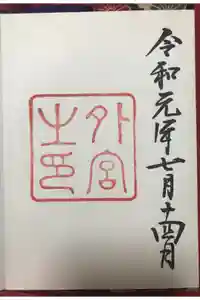 令和元年七月十四日
外宮
之印